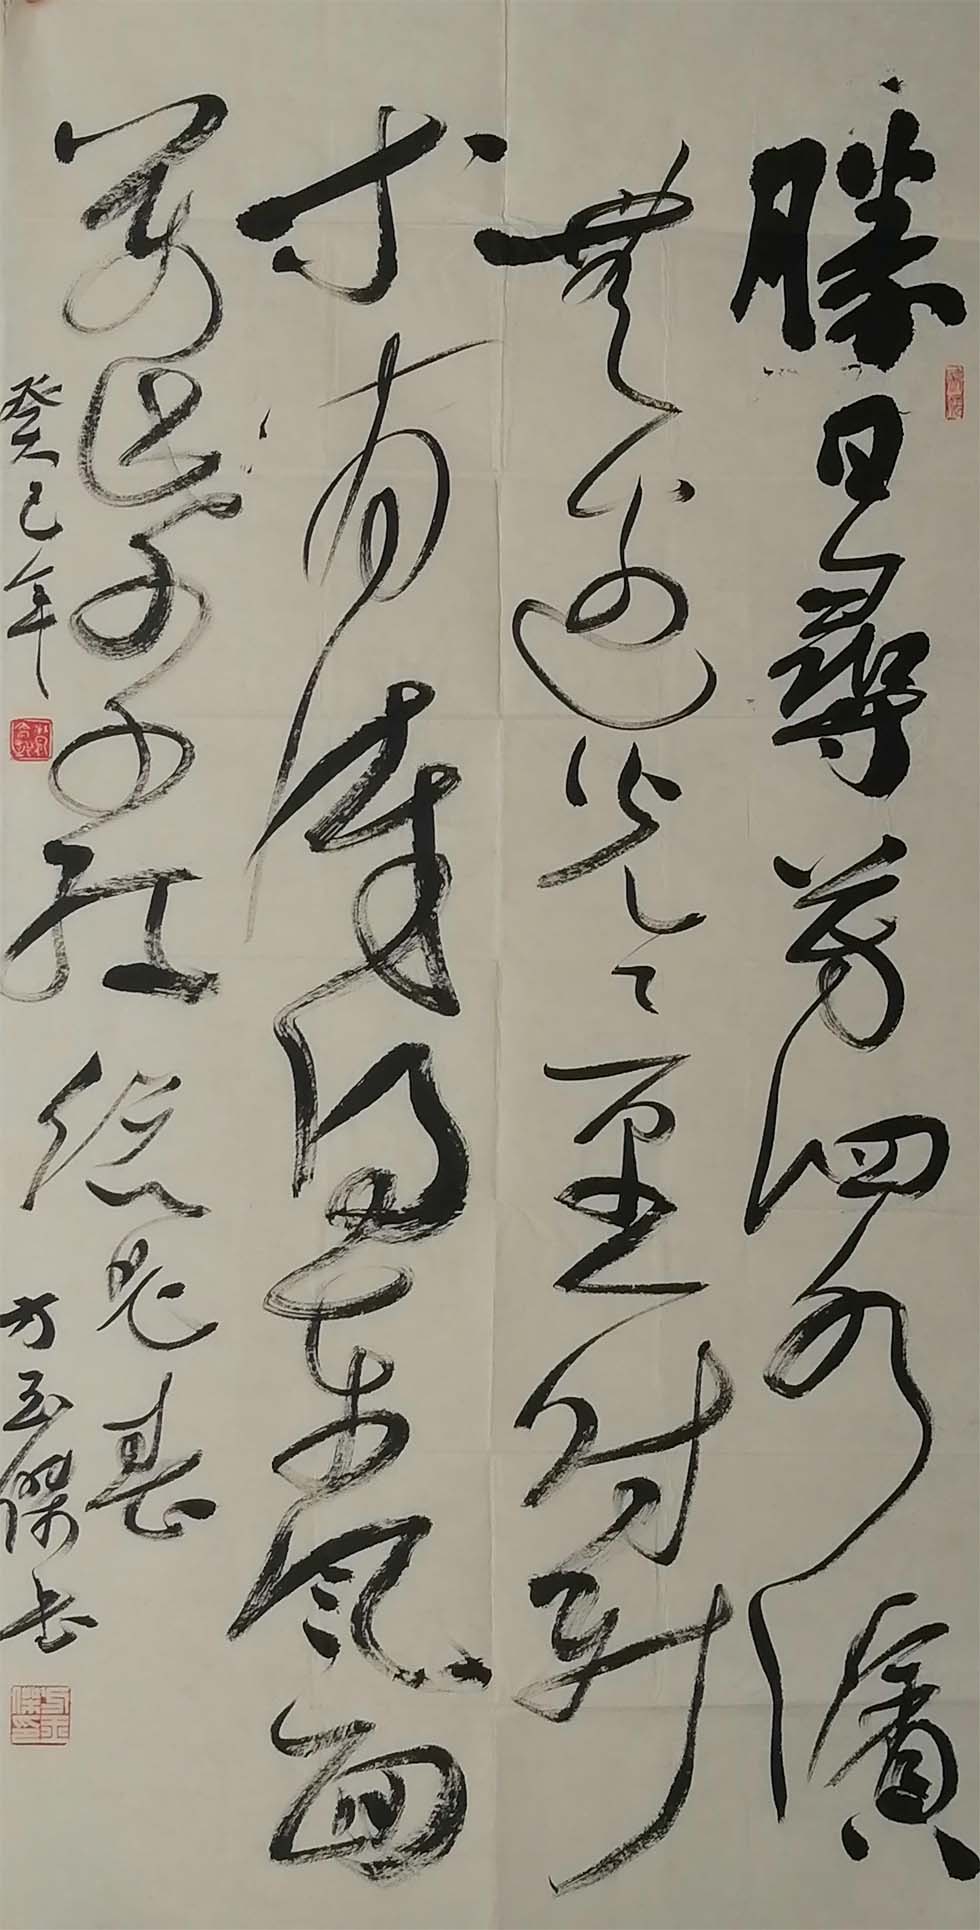 勝日尋芳泗水濱
無邊光景一時新
等閒識得東風面
萬紫千紅總是春
癸巳年 方玉傑書
方玉傑印